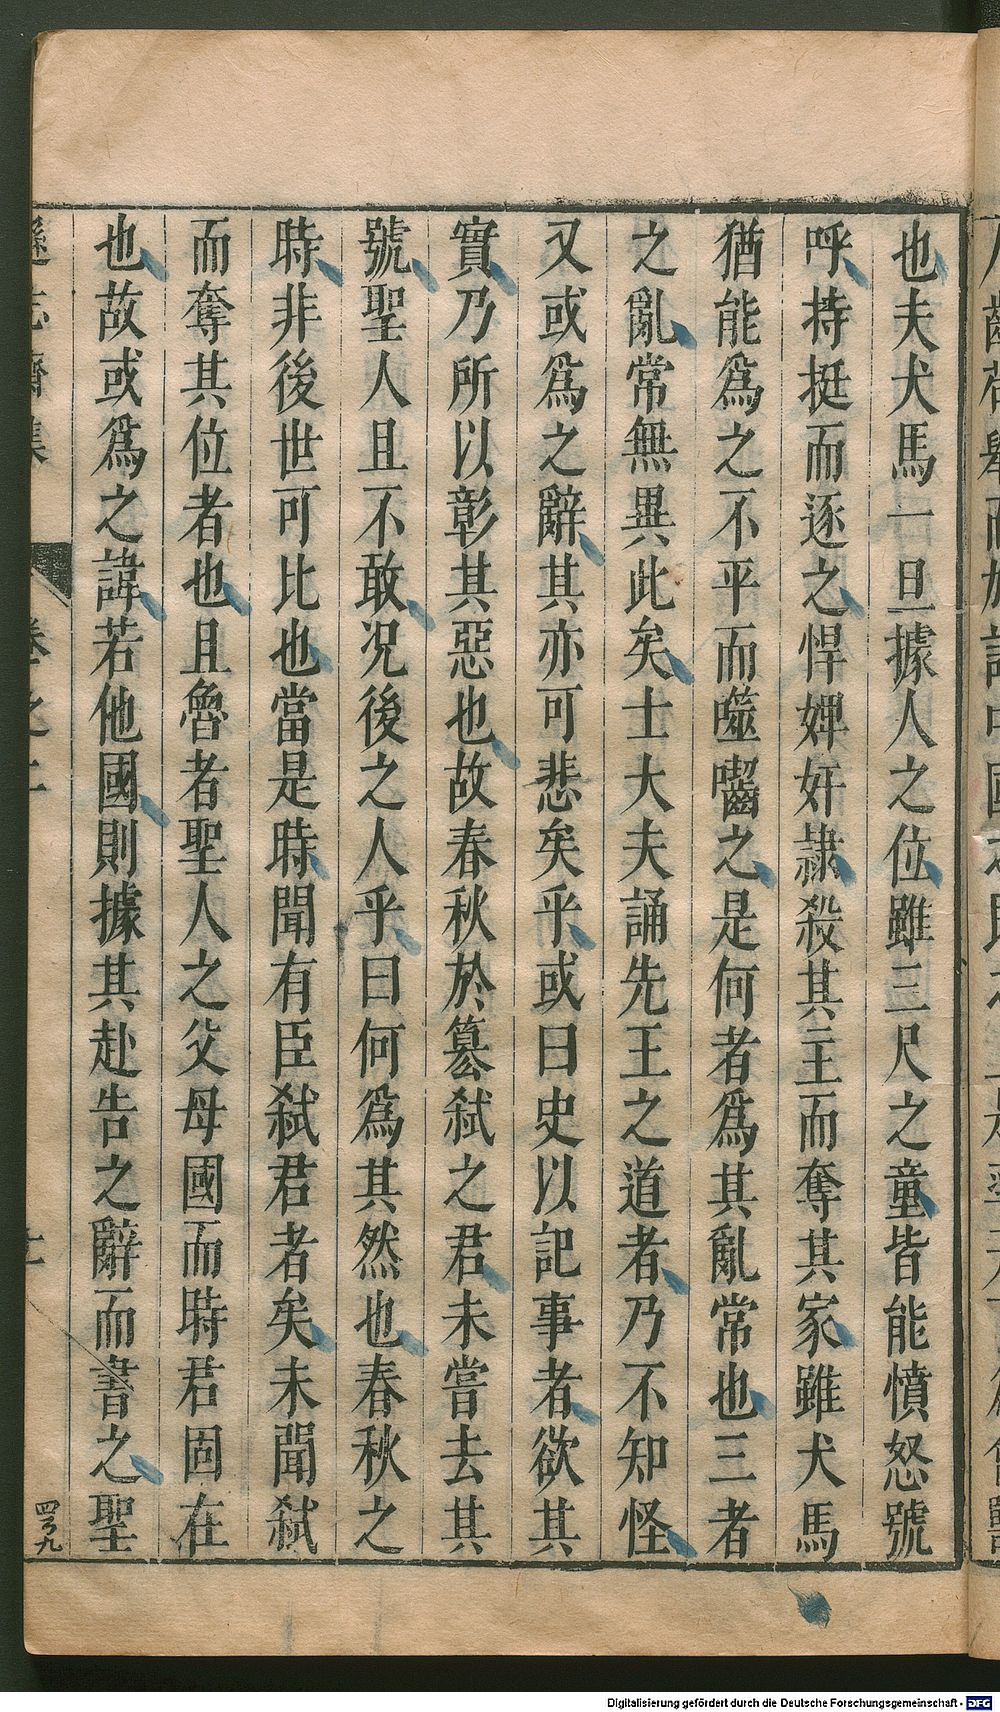 也夫犬馬一旦據人之位雖三尺之童皆能憤怒號
呼持挺而逐之悍婢奸隷殺其主而奪其家雖犬馬
猶能爲之不平而噬囓之是何者爲其亂常也三者
之亂常無異此矣士大夫誦先王之道者乃不知怪
又或爲之辭其亦可悲矣乎或曰史以記事者欲其
實乃所以彰其惡也故春秋於簒弑之君未嘗去其
號聖人且不敢况後之人乎曰何爲其然也春秋之
時非後世可比也當是時聞有臣弑君者矣未聞弑
而奪其位者也且魯者聖人之父母國而時君固在
也故或爲之諱若他國則據其赴告之辭而書之聖
遜志齋集
卷之二
Digitalisierung gefördert durch die Deutsche Forschungsgemeinschaft - DFG